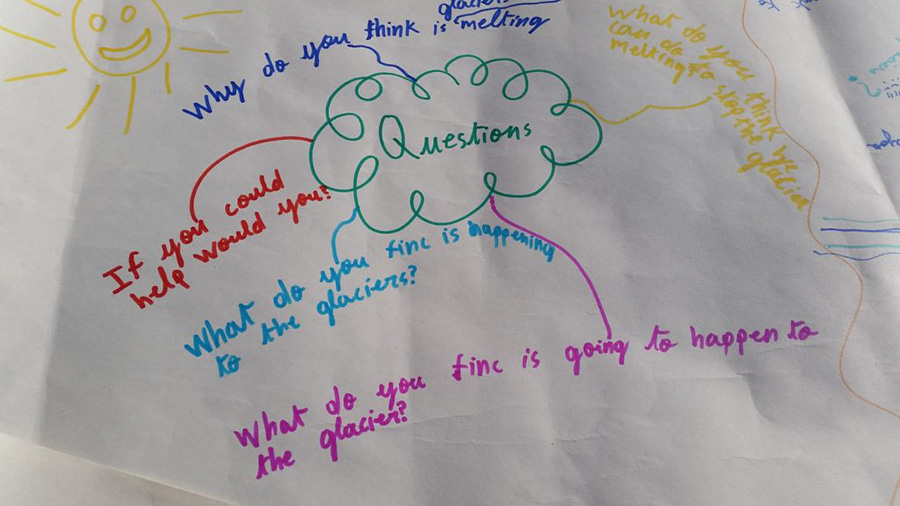 glaciers
Why do you think is melting
What do you think we
can do to stop the glacier
melting?
Questions
If you could
help would you?
What do you finc is happening
to the glaciers?
What do you finc is going to happen to
the glacier?